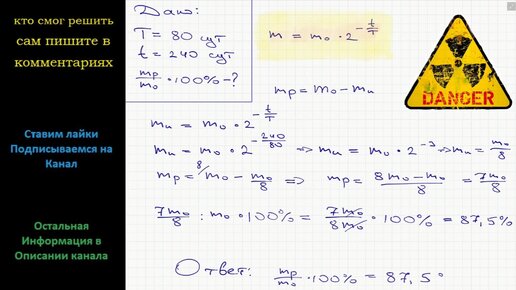 кто смог решить
сам пишите в
комментариях
Ставим лайки
Подписываемся на
Канал
Остальная
Информация в
Описании канала
Дано:
T = 80 сут
t = 240 сут
mр/m₀ · 100% - ?
m = m₀ · 2^(-t/T)
mр = m₀ - mн
DANCER
mн = m₀ · 2^(-t/T)
mн = m₀ · 2^(-240/80) => mн = m₀ · 2^(-3) => mн = m₀/8
mр = ⁸/m₀ - m₀/8 => mр = (8m₀ - m₀)/8 = 7m₀/8
7m₀/8 : m₀ · 100% = 7m₀/8m₀ · 100% = 87,5%
Ответ: mр/m₀ · 100% = 87,5°